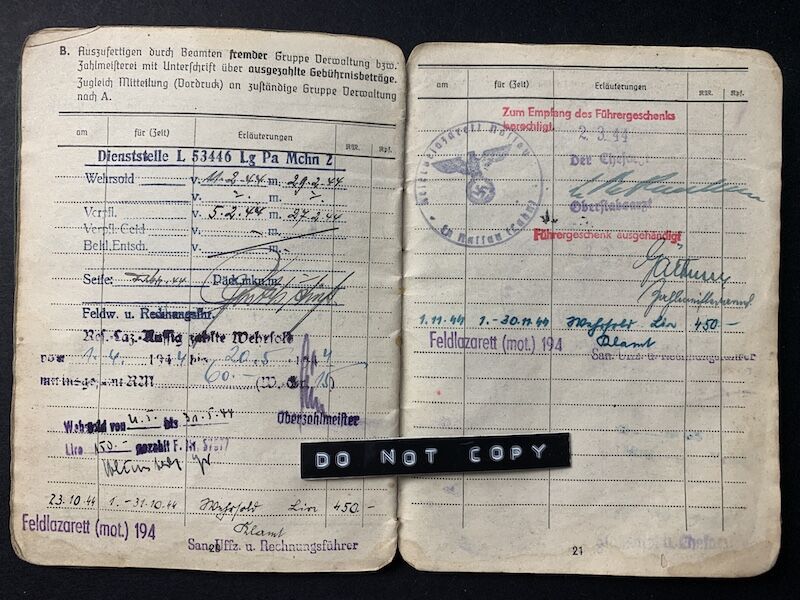 B. Auszufertigen durch Beamten fremder Gruppe Verwaltung bzw.
Zahlmeisterei mit Unterschrift über ausgezahlte Gebührnisbeträge.
Zugleich Mitteilung (Vordruck) an zuständige Gruppe Verwaltung
nach A.
am für (Zeit) Erläuterungen RM. Rpf.
Dienststelle L 53446 Lg Pa Mchn 2
Wehrsold v. 11.2.44 m. 29.2.44
v. m.
Verpfl. v. 5.2.44 m. 27.2.44
Verpfl.Geld v. — m. —
Bekl.Entsch. v. m.
Seife: Febr. 44 Päckmkn.m.
Feldw. u. Rechnungsfhr.
Res.-Laz.-Aussig zahlte Wehrsold
vom 1.4. 1944 bis 20.5. 1944
mit insgesamt RM 60.—
Oberzahlmeister
Wehrsold von bis 31.5.44
Lire 150.- gezahlt F.
23.10.44 1.-31.10.44 Wehrsold Lire 450 —
Klamt
Feldlazarett (mot.) 194
San. Uffz. u. Rechnungsführer
20
am für (Zeit) Erläuterungen RM. Rpf.
Zum Empfang des Führergeschenks
berechtigt
2.3.44
Der Chefarzt
Oberstabsarzt
Führergeschenk ausgehändigt
1.11.44 1.-30.11.44 Wehrsold Lire 450 —
Klamt
Feldlazarett (mot.) 194
San. Uffz. u. Rechnungsführer
DO NOT COPY
21